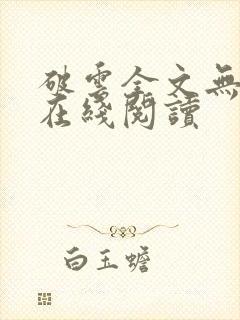 破雲全文無
在綫閱讀
白玉蟾